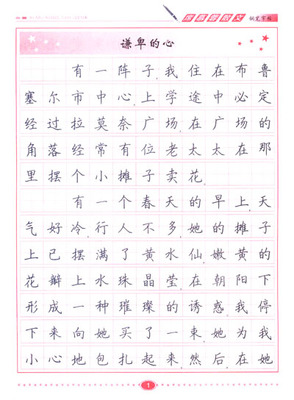 谦卑的心
有一阵子,我住在布鲁
塞尔市中心,上学途中必定
经过拉莫奈广场,在广场的
角落经常有位老太太在那
里摆个小摊子卖花.
有一个春天的早上,天
气好冷,行人不多,她的摊子
上已摆满了黄水仙,嫩黄的
花瓣上水珠晶莹,在朝阳下
形成一种璀璨的诱惑,我停
下来向她买了一束,她为我
小心地包扎起来,然后在她
1